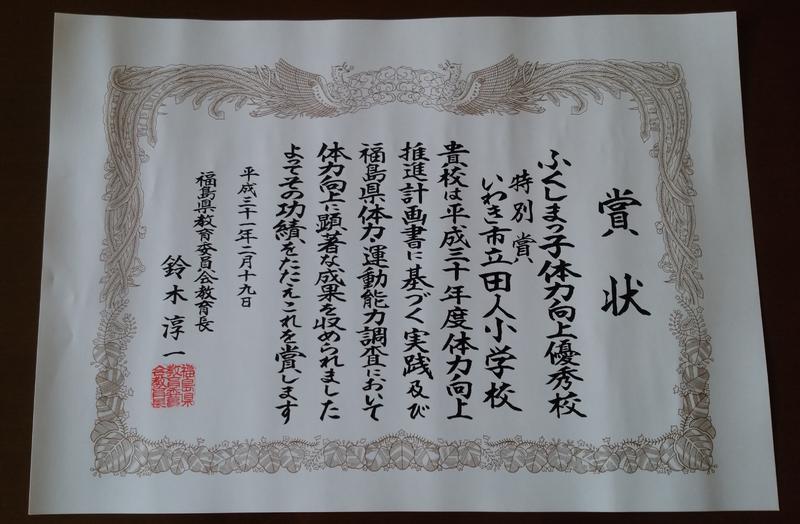 賞状
ふくしまっ子体力向上優秀校
特別賞
いわき市立田人小学校
貴校は平成三十年度体力向上
推進計画書に基づく実践及び
福島県体力・運動能力調査において
体力向上に顕著な成果を収められました
よってその功績をたたえこれを賞します
平成三十一年二月十九日
福島県教育委員会教育長
鈴木淳一
福島県
教育委員
会教育長